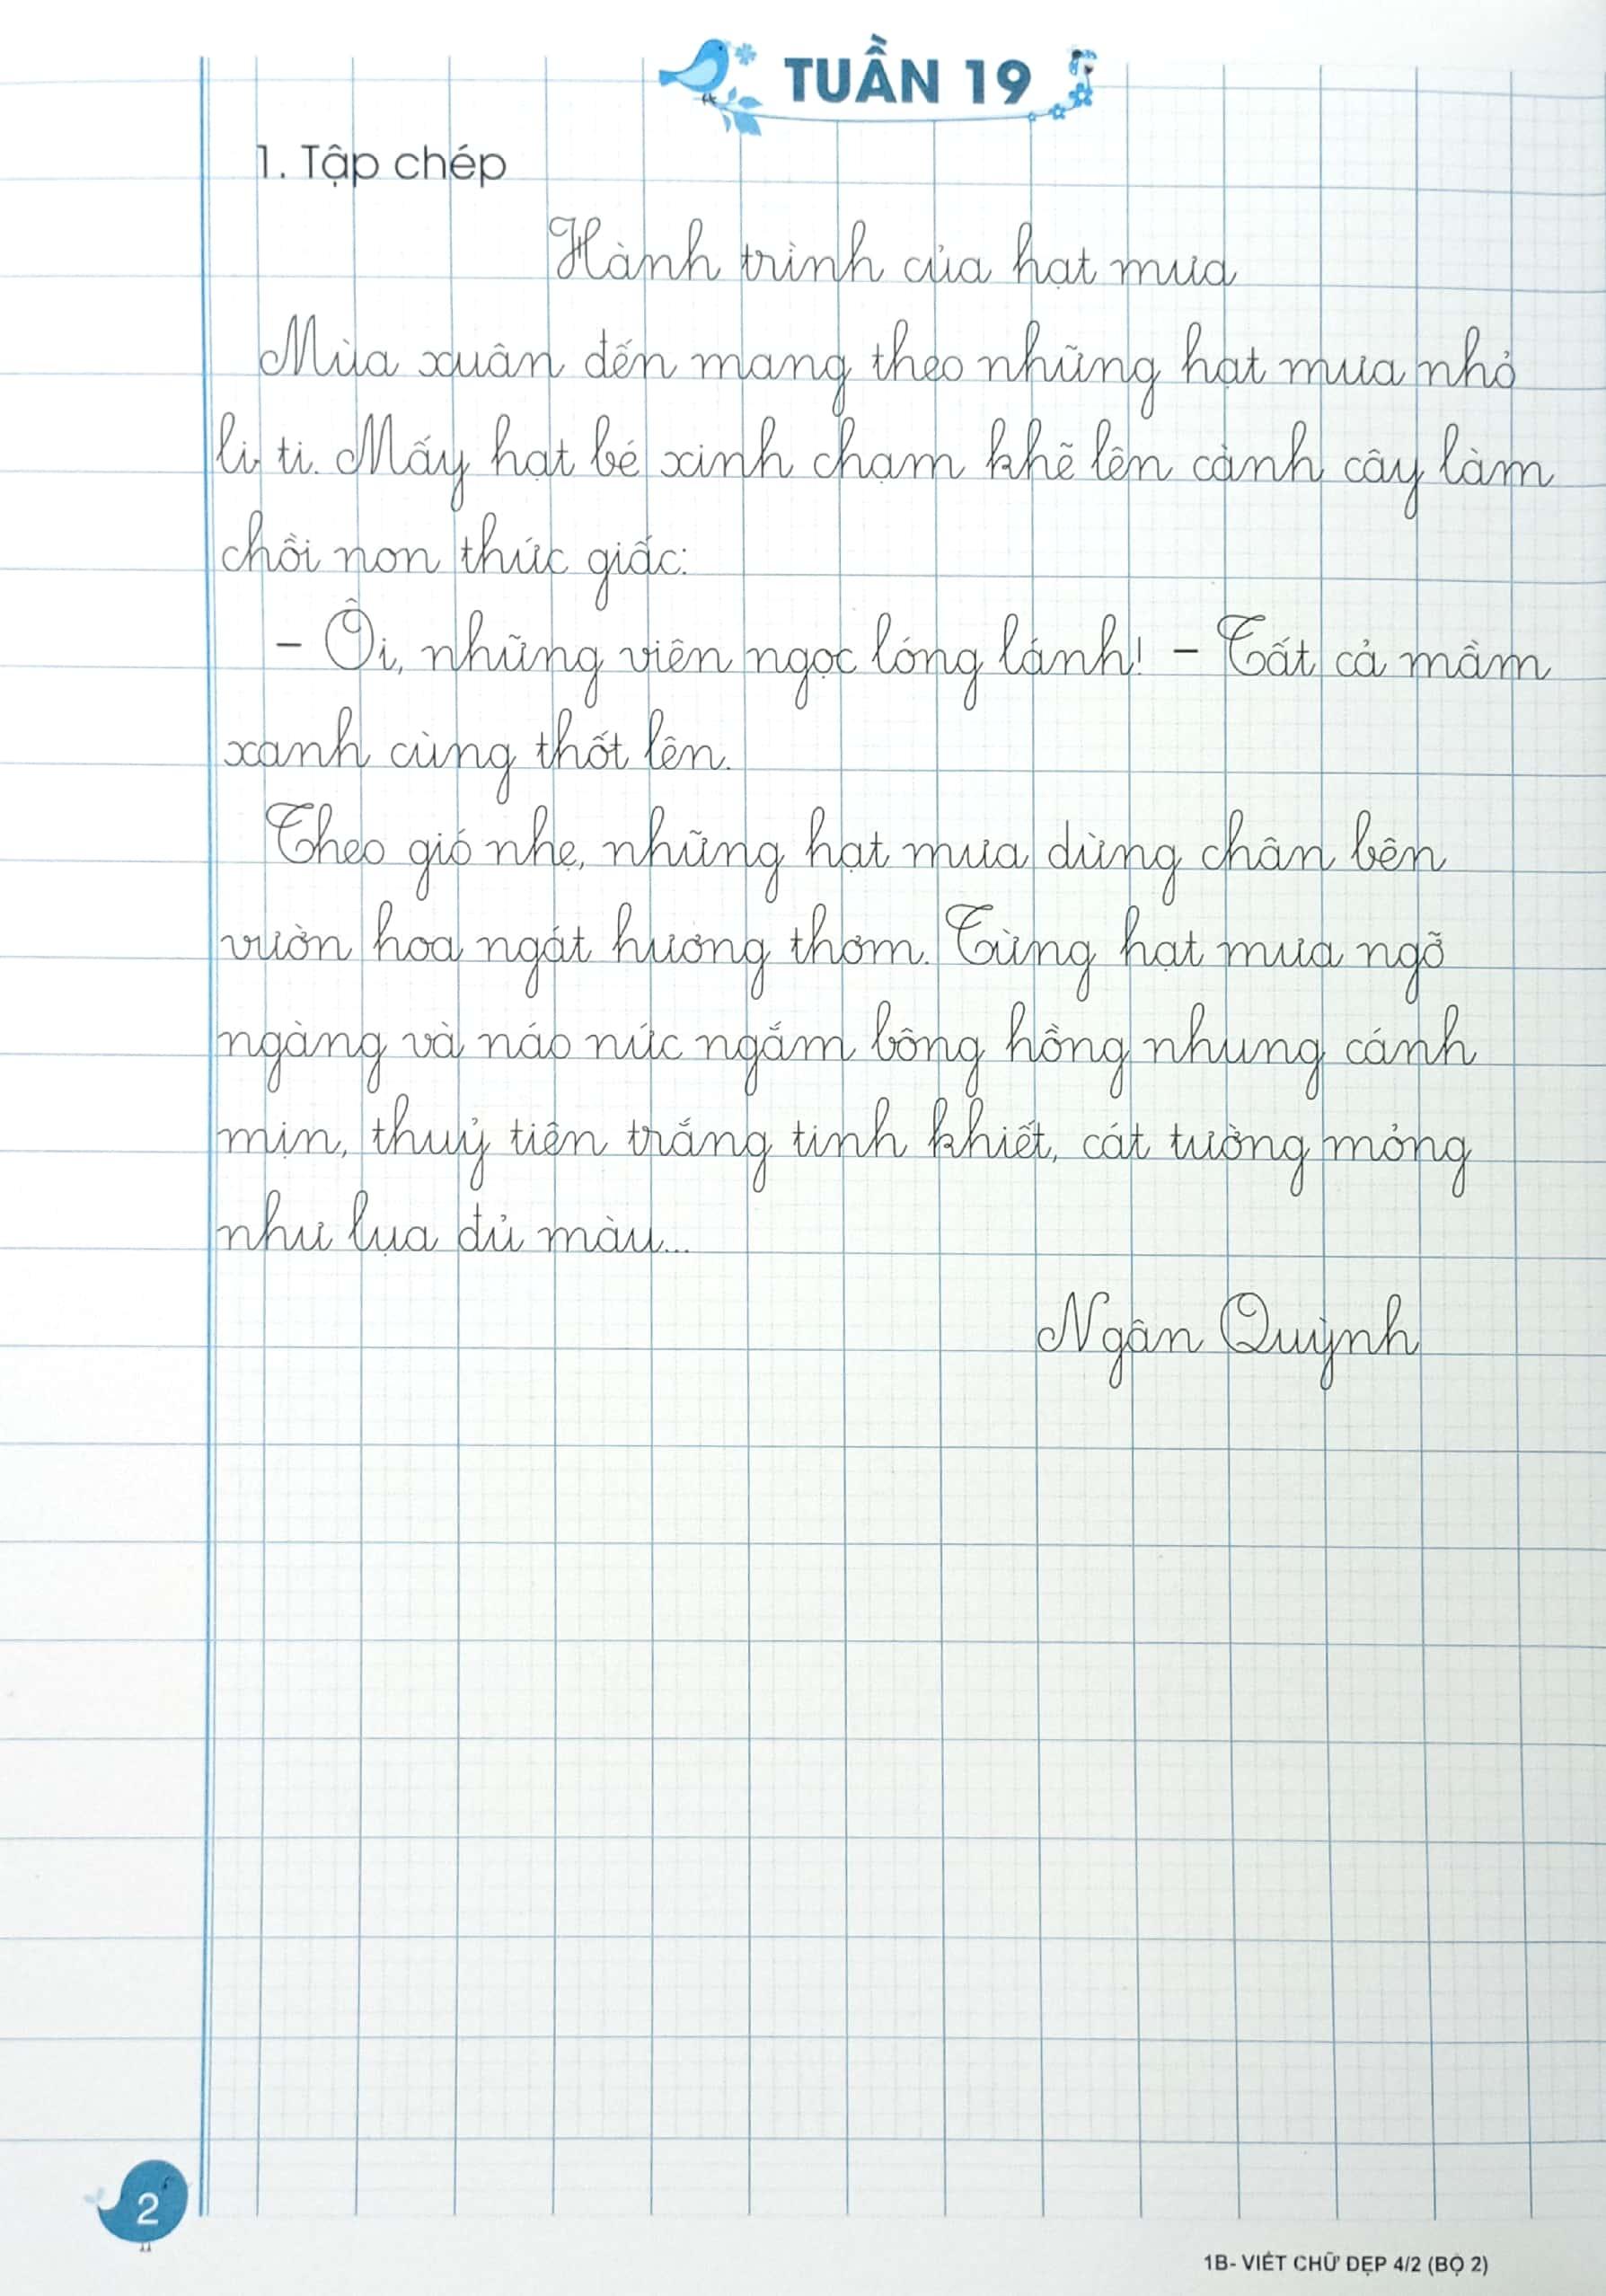 TUẦN 19
1. Tập chép
Hành trình của hạt mưa
Mùa xuân đến mang theo những hạt mưa nhỏ
li ti. Mấy hạt bé xinh chạm khẽ lên cành cây làm
chồi non thức giấc:
- Ôi, những viên ngọc lóng lánh! - Tất cả mầm
xanh cùng thốt lên.
Theo gió nhẹ, những hạt mưa dừng chân bên
vườn hoa ngát hương thơm. Từng hạt mưa ngỡ
ngàng và náo nức ngắm bông hồng nhung cánh
mịn, thuỷ tiên trắng tinh khiết, cát tường mỏng
như lụa đủ màu...
Ngân Quỳnh
2
1B- VIẾT CHỮ ĐẸP 4/2 (BỘ 2)